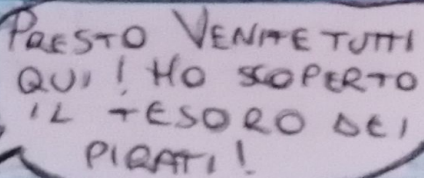 PRESTO VENITE TUTTI
QUI! HO SCOPERTO
IL TESORO DEI
PIRATI!